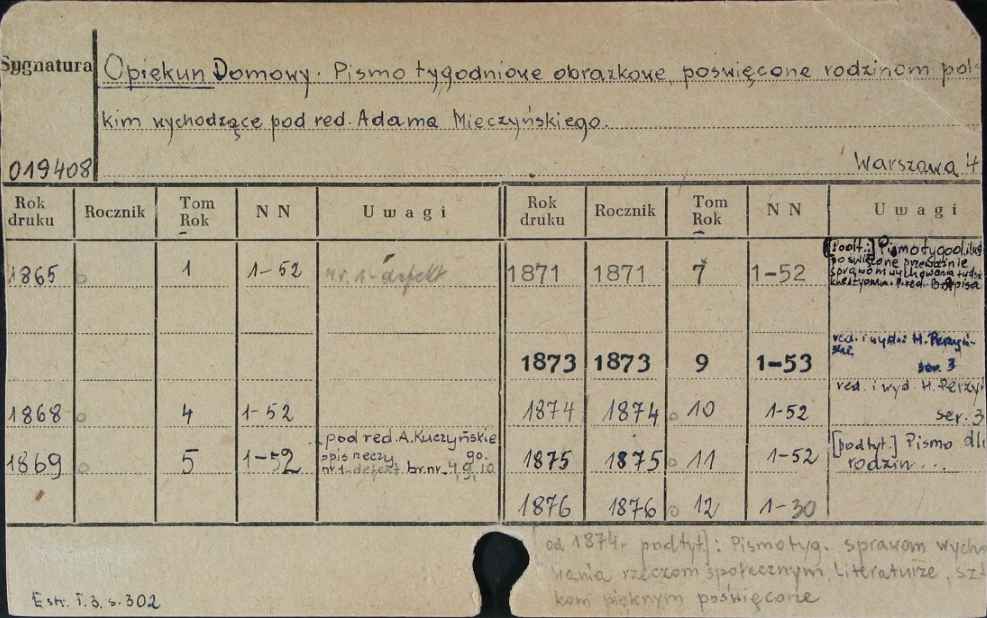 Sygnatura
Opiekun Domowy. Pismo tygodniowe obrazkowe, poswięcone rodzinom pols
kim wychodzące pod red. Adama Mieczyńskiego.
019408
Warszawa 4
Rok druku Rocznik Tom Rok N N Uwagi Rok druku Rocznik Tom Rok N N Uwagi
1865 1 1-52 nr. 1-defekt 1871 1871 7 1-52 [podt.:] Pismo tygod
poświęcone przeważnie
sprawom wychowania
1873 1873 9 1-53 red. i wyd. H. Perzyń-
ski ser. 3
1868 4 1-52 1874 1874 10 1-52 red. i wyd. H. Perzy
ser. 3
1869 5 1-52 pod red. A. Kuczyńskie
go. spis rzeczy
nr. 1-defekt br. nr. 4, 9, 10
1875 1875 11 1-52 [podtyt.] Pismo dla
rodzin...
1876 1876 12 1-30
od 1874r podtyt]: Pismo tyg. sprawom wycho
wania rzeczom społecznym Literaturze, sz
kom pięknym poświęcone
Estr. T. 3. s. 302